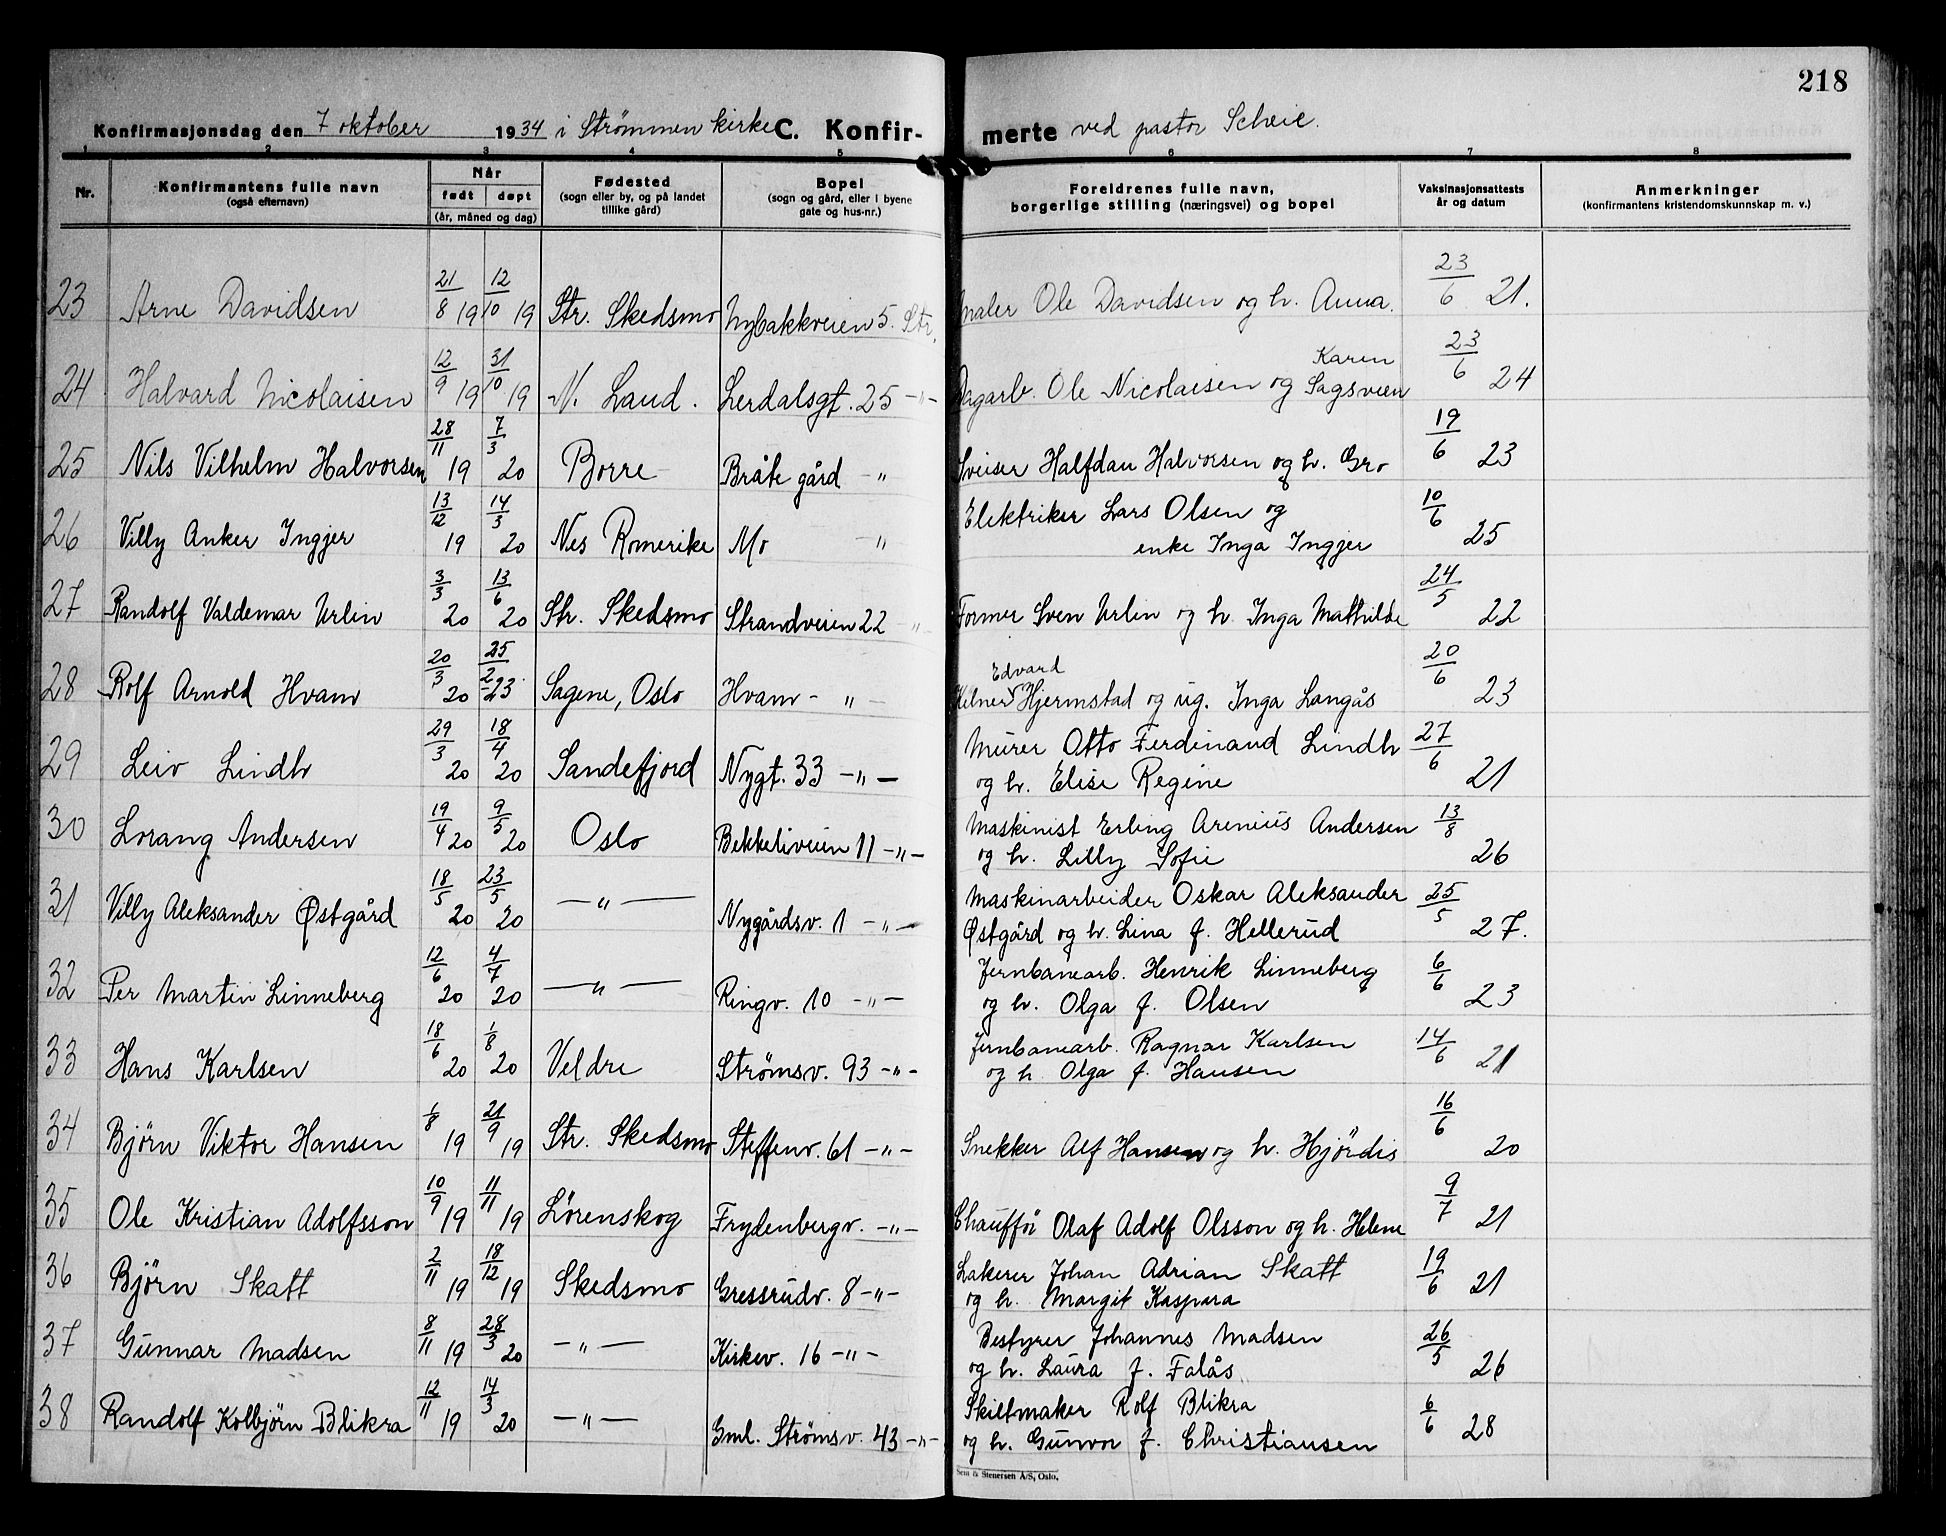 218
Konfirmasjonsdag den 7 oktober 1934 i Strømmen kirke C. Konfir- merte ved pastor Scheie.
1 2 3 4 5 6 7 8
Nr. Konfirmantens fulle navn (også efternavn) Når født døpt (år, måned og dag) Fødested (sogn eller by, og på landet tillike gård) Bopel (sogn og gård, eller i byene gate og hus-nr.) Foreldrenes fulle navn, borgerlige stilling (næringsvei) og bopel Vaksinasjonsattests år og datum Anmerkninger (konfirmantens kristendomskunnskap m. v.)
23 Arne Davidsen 21/8 19 12/10 19 Str. Skedsmo Nybakkveien 5. Str. Maler Ole Davidsen og h. Anna. 23/6 21.
24 Halvard Nicolaisen 12/9 19 31/10 19 N. Land. Lerdalsgt. 25 -"- Dagarb. Ole Nicolaisen og Karen Sagsveen 23/6 24
25 Nils Vilhelm Halvorsen 28/11 19 7/3 20 Borre Bråte gård -" Sveiser Halfdan Halvorsen og h. Gro 19/6 23
26 Villy Anker Ingjer 13/12 19 14/3 20 Nes Romerike Mo -" Elektriker Lars Olsen og
enke Inga Ingjer 10/6 25
27 Randolf Valdemar Urlin 3/3 20 13/6 20 Str. Skedsmo Strandveien 22 -"- Former Sven Urlin og h. Inga Mathilde 24/5 22
28 Rolf Arnold Hvam 20/3 20 25/2 23 Sagene, Oslo Hvam - " - Kelner Edvard Hjermstad og ug. Inga Langås 20/6 23
29 Leiv Lindh 29/3 20 18/4 20 Sandefjord Nygt. 33 -"- Murer Otto Ferdinand Lindh
og h. Elise Regine 27/6 21
30 Lorang Andersen 19/4 20 9/5 20 Oslo Bekkeliveien 11 -"- Maskinist Erling Arenius Andersen
og h. Lilly Sofie 13/8 26
31 Villy Aleksander Østgård 18/5 20 23/5 20 -"- Nygårdsv. 1 -"- Maskinarbeider Oskar Aleksander
Østgård og h. Lina f. Hellerud 25/5 27.
32 Per Martin Linneberg 12/6 20 4/7 20 -"- Ringv. 10 -"- Jernbanearb. Henrik Linneberg
og h. Olga f. Olsen 6/6 23
33 Hans Karlsen 18/6 20 1/8 20 Veldre Strømsv. 93 -"- Jernbanearb. Ragnar Karlsen
og h. Olga f. Hansen 14/6 21
34 Bjørn Viktor Hansen 1/8 19 21/9 19 Str. Skedsmo Steffenv. 61 -"- Snekker Alf Hansen og h. Hjördis 16/6 20
35 Ole Kristian Adolfsson 10/9 19 11/11 19 Lørenskog Frydenbergv. -"- Chaufför Olaf Adolf Olsson og h. Helene 9/7 21
36 Bjørn Skatt 2/11 19 18/12 19 Skedsmo Gressrudv. 8 -"- Lakerer Johan Adrian Skatt
og h. Margit Kaspara 19/6 21
37 Gunnar Madsen 8/11 19 28/3 20 -"- Kirkev. 16 -"- Bestyrer Johannes Madsen
og h. Laura f. Falås 26/5 26
38 Randolf Kolbjørn Blikra 12/11 19 14/3 20 -"- Gml. Strømsv. 43 -"- Skiltmaker Rolf Blikra
og h. Gunvor f. Christiansen 6/6 28
Sem & Stenersen A/S, Oslo.